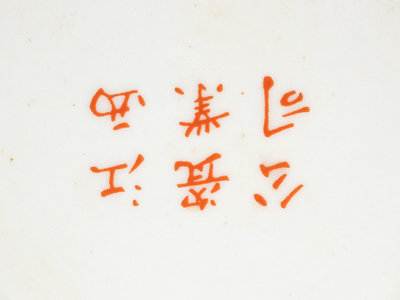 江西
瓷業
公司